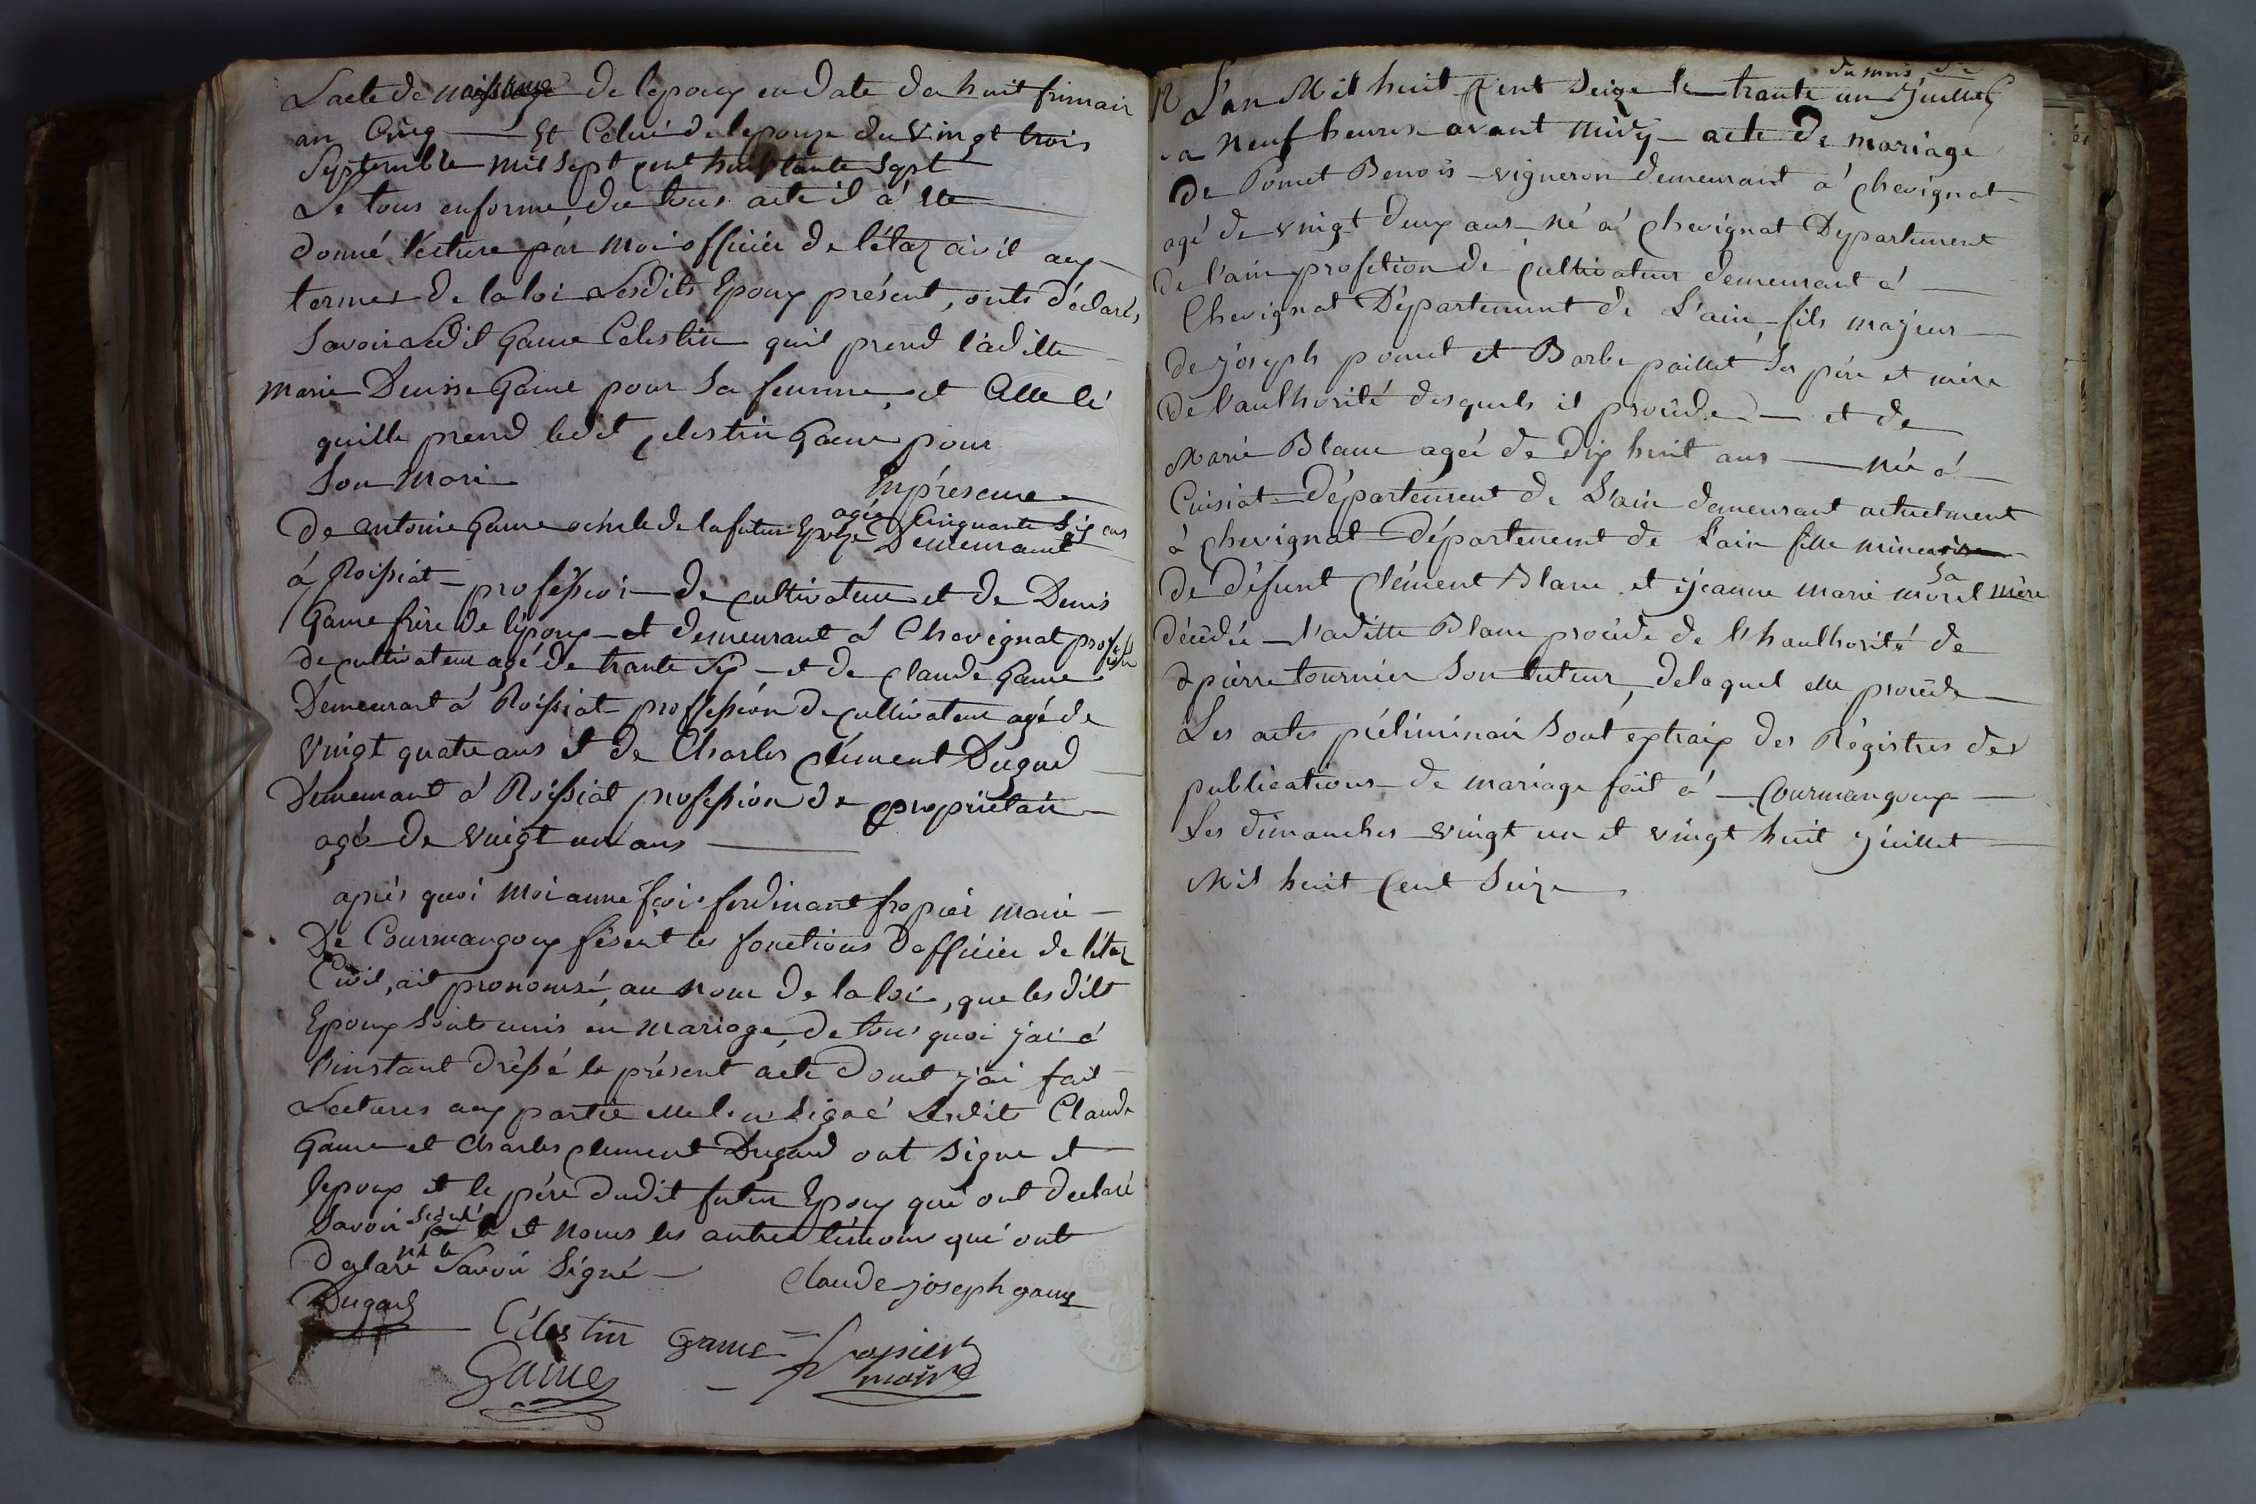 L'acte de naissance de l'epoux en date du huit frimair
an Cinq — Et Celui de l'epouse du vingt trois
Septembre mil sept cent huitante sept
Le tous en forme, du tous acte il a été
donné lecture par moi officier de l'état civil aux
termes de la loi Lesdits Epoux présent, onts déclarés
Savoir Ledit Game Célestin quil prend l'aditte
marie Denise Game pour Sa femme, et Celle ci
quille prend ledit Celestin Game pour
Son Mari En présence
De antoine Game oncle de la futur Epouze agée Cinquante Six ans Demeurant
à Roissiat — professioin de cultivateur et de Denis
Game frère de l'époux — et demeurant à Chevignat profession
de cultivateur agé de trante Six — et de Claude Game
Demeurant à Roissiat profession de cultivateur agé de
Vingt quatre ans et de Charles Clément Dugad
Demeurant à Roissiat profession de propriétair
agé de vingt un ans
après quoi Moi anne fçois ferdinant fropier maire
De Courmangoux fésent les fonctions d'officier de l'état
Civil, ait prononcé, au nom de la loi, que lesdits
Epoux sonts unis en mariage, de tous quoi j'ai à
l'instant dréssé le présent acte dont j'ai fait
Lectures aux partie Lesdits Claude
Game et Charles Clement Dugad ont Signe et
l'epoux et le père dudit futur Epoux qui ont déclaré
Savoir signé et nous les autres témoins qui ont
Déclaré ne le Savoir Signé — Claude joseph game
Dugad
Célestin Game = fropier
Game — maire
12 L'an Mil huit Cent Seize le trante un du mois de Juillet
a Neuf heures avant midy — acte de mariage
de Pomet Benois — vigneron demeurant a chevignat
agé de vingt deux ans — né a chevignat Département
de l'ain profetion de cultivateur demeurant a
Chevignat Département de L'ain — fils majeur
de joseph pomet et Barbe paillet Ses père et mère
de l'aulhorité desquels il procéde — et de
Marie Blanc agée de Dix huit ans — née à
Cuisiat Département de L'ain demeurant actuelment
à chevignat Département de L'ain fille mineure
de défunt Clément Blanc et jeanne marie morel Sa mère
décédée — l'aditte Blanc procéde de l'haulhorité de
pierre tournier Son tuteur, delaquel elle procéde
Les actes préliminair Sont extraix des Régistres des
publications de mariage fait à — Courmangoux
Les dimanches vingt un et vingt huit juillet
Mil huit Cent Seize